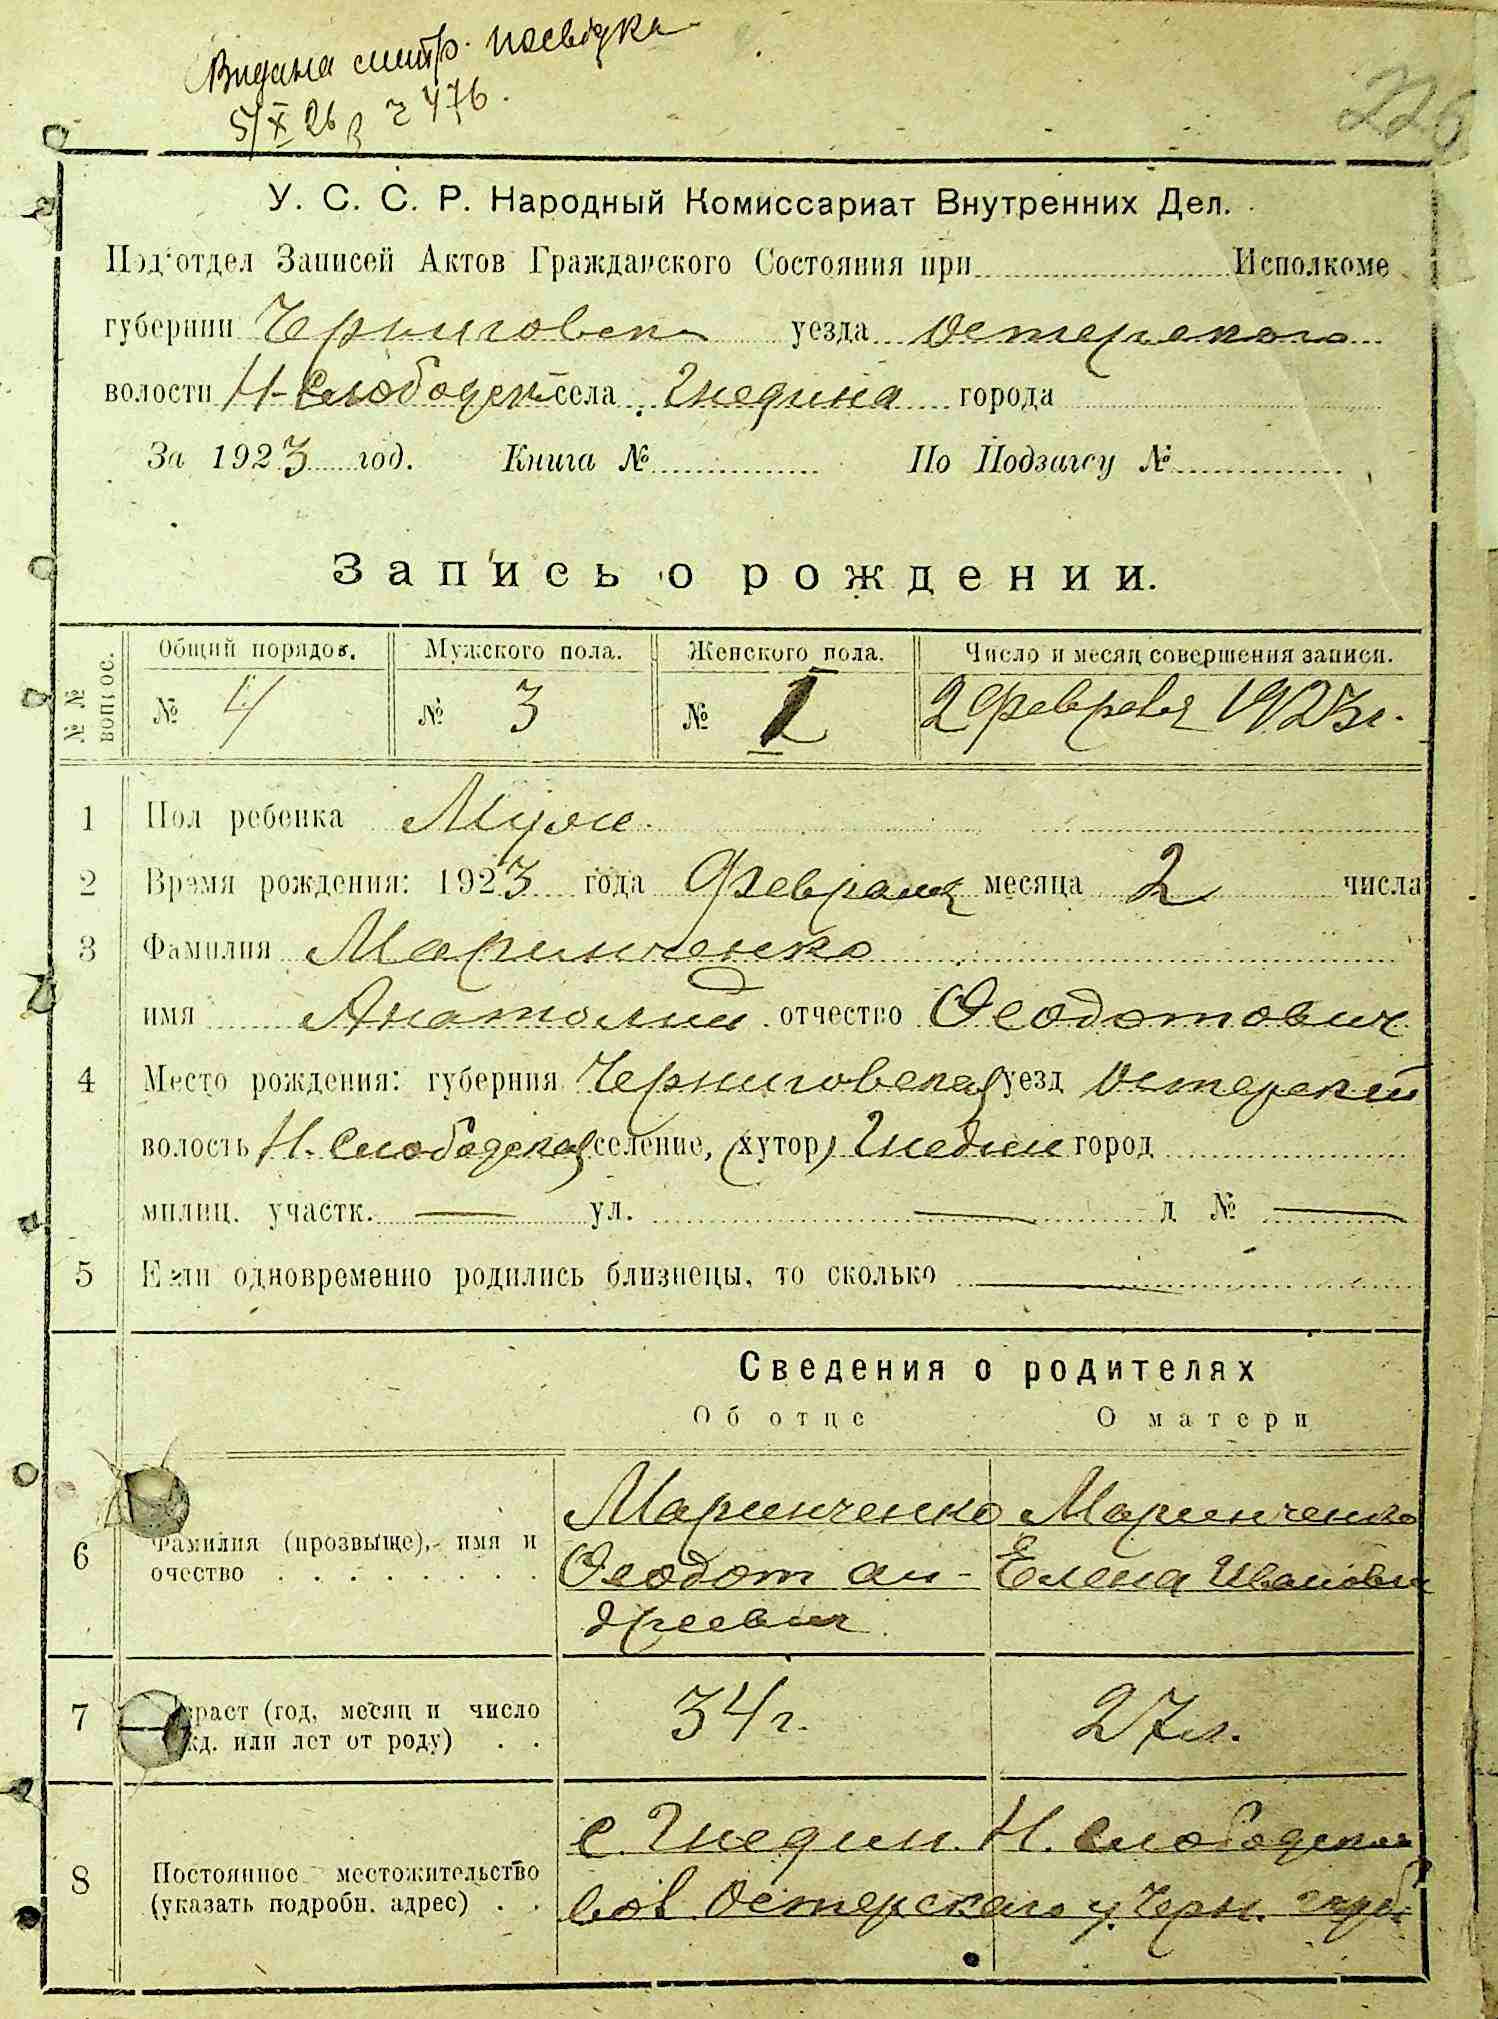 Видана метр. посвідка
5/X 26 р ч 476.
226
У. С. С. Р. Народный Комиссариат Внутренних Дел.
Под'отдел Записей Актов Гражданского Состояния при Исполкоме
губернии Черниговск уезда Остерского
волости Н-Слободск села Гнедина города
За 1923 год. Книга № По Подзагсу №
Запись о рождении.
№№ вопрос. Общий порядов. Мужского пола. Женского пола. Число и месяц совершения записи.
№ 4 № 3 № 1 2 февраля 1923 г.
1 Пол ребенка Муж.
2 Время рождения: 1923 года Февраля месяца 2 числа
3 Фамилия Маринченко
имя Анатолий отчество Феодотович
4 Место рождения: губерния Черниговская уезд Остерский
волость Н. Слободская селение, (хутор) Гнедин город
милиц. участк. — ул. — д № —
5 Если одновременно родились близнецы, то сколько —
Сведения о родителях
Об отце О матери
Маринченко Маринченко
6 Фамилия (прозвыще), имя и
очество Феодот Ан- Елена Ивановна
дреевич
7 раст (год, месяц и число 34 г. 27 л.
жд. или лет от роду)
с. Гнедин Н. Слободской
8 Постоянное местожительство
(указать подробн. адрес) вол Остерского у. Черн. губ.